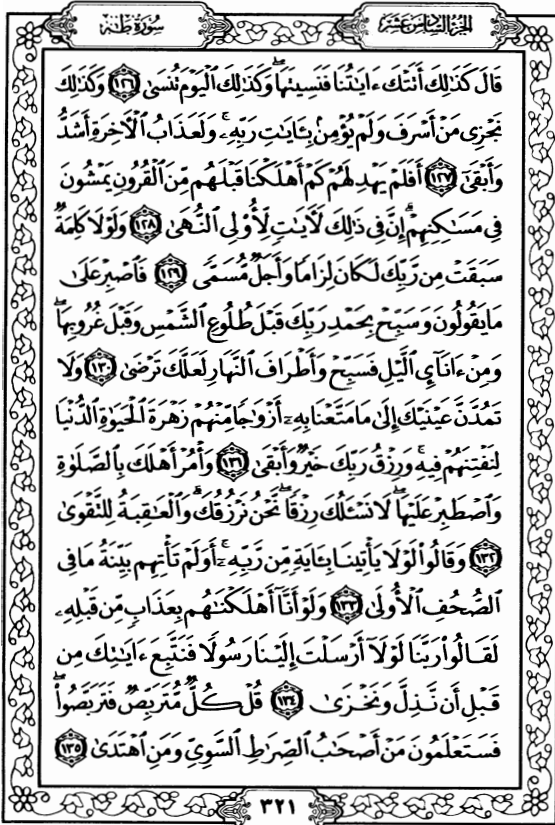 سُورَةُ طه الجُزءُ السَّادِسَ عَشَرَ
قَالَ كَذَٰلِكَ أَتَتْكَ ءَايَٰتُنَا فَنَسِيتَهَا ۖ وَكَذَٰلِكَ ٱلْيَوْمَ تُنسَىٰ ١٢٦ وَكَذَٰلِكَ
نَجْزِى مَنْ أَسْرَفَ وَلَمْ يُؤْمِنۢ بِـَٔايَٰتِ رَبِّهِۦ ۚ وَلَعَذَابُ ٱلْـَٔاخِرَةِ أَشَدُّ
وَأَبْقَىٰٓ ١٢٧ أَفَلَمْ يَهْدِ لَهُمْ كَمْ أَهْلَكْنَا قَبْلَهُم مِّنَ ٱلْقُرُونِ يَمْشُونَ
فِى مَسَٰكِنِهِمْ ۗ إِنَّ فِى ذَٰلِكَ لَـَٔايَٰتٍ لِّأُو۟لِى ٱلنُّهَىٰ ١٢٨ وَلَوْلَا كَلِمَةٌ
سَبَقَتْ مِن رَّبِّكَ لَكَانَ لِزَامًا وَأَجَلٌ مُّسَمًّى ١٢٩ فَٱصْبِرْ عَلَىٰ
مَا يَقُولُونَ وَسَبِّحْ بِحَمْدِ رَبِّكَ قَبْلَ طُلُوعِ ٱلشَّمْسِ وَقَبْلَ غُرُوبِهَا ۖ
وَمِنْ ءَانَآئِ ٱلَّيْلِ فَسَبِّحْ وَأَطْرَافَ ٱلنَّهَارِ لَعَلَّكَ تَرْضَىٰ ١٣٠ وَلَا
تَمُدَّنَّ عَيْنَيْكَ إِلَىٰ مَا مَتَّعْنَا بِهِۦٓ أَزْوَٰجًا مِّنْهُمْ زَهْرَةَ ٱلْحَيَوٰةِ ٱلدُّنْيَا
لِنَفْتِنَهُمْ فِيهِ ۚ وَرِزْقُ رَبِّكَ خَيْرٌ وَأَبْقَىٰ ١٣١ وَأْمُرْ أَهْلَكَ بِٱلصَّلَوٰةِ
وَٱصْطَبِرْ عَلَيْهَا ۖ لَا نَسْـَٔلُكَ رِزْقًا ۖ نَّحْنُ نَرْزُقُكَ ۗ وَٱلْعَٰقِبَةُ لِلتَّقْوَىٰ
١٣٢ وَقَالُوا۟ لَوْلَا يَأْتِينَا بِـَٔايَةٍ مِّن رَّبِّهِۦٓ ۚ أَوَلَمْ تَأْتِهِم بَيِّنَةُ مَا فِى
ٱلصُّحُفِ ٱلْأُولَىٰ ١٣٣ وَلَوْ أَنَّآ أَهْلَكْنَٰهُم بِعَذَابٍ مِّن قَبْلِهِۦ
لَقَالُوا۟ رَبَّنَا لَوْلَآ أَرْسَلْتَ إِلَيْنَا رَسُولًا فَنَتَّبِعَ ءَايَٰتِكَ مِن
قَبْلِ أَن نَّذِلَّ وَنَخْزَىٰ ١٣٤ قُلْ كُلٌّ مُّتَرَبِّصٌ فَتَرَبَّصُوا۟ ۖ
فَسَتَعْلَمُونَ مَنْ أَصْحَٰبُ ٱلصِّرَٰطِ ٱلسَّوِىِّ وَمَنِ ٱهْتَدَىٰ ١٣٥
٣٢١